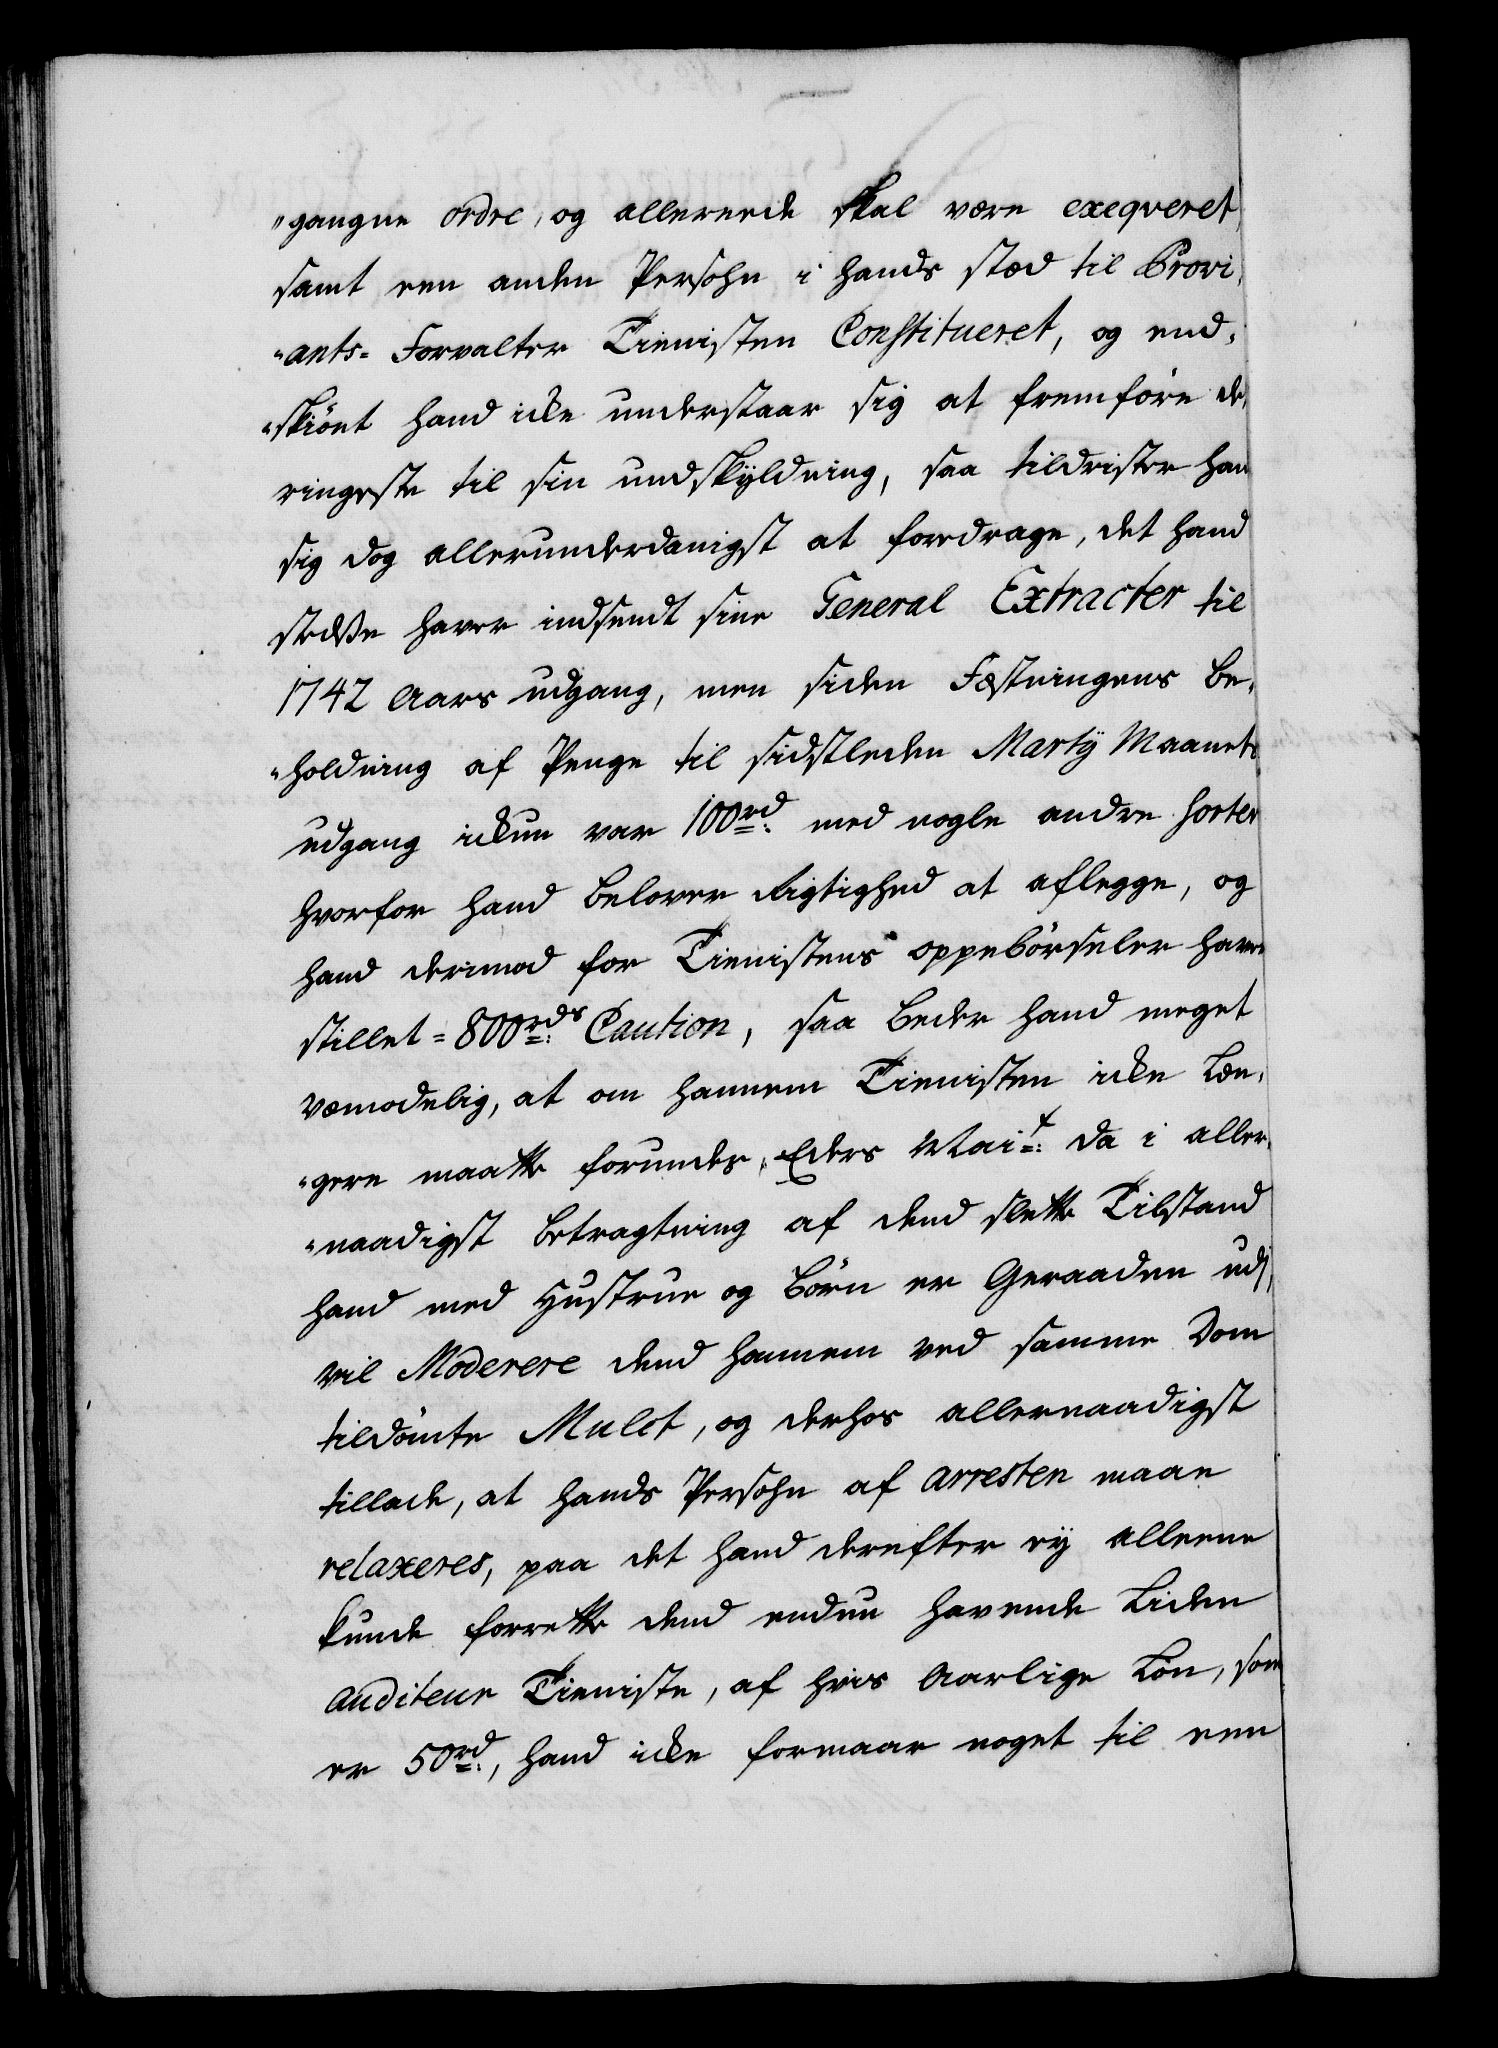 "gangne ordre, og allereede skal være exeqveret,
samt een anden Persohn i hands stæd til Provi,
"ants-Forvalter Tienisten Constitueret, og end,
"skiönt hand icke understaar sig at fremföre de,
ringeste til sin undskÿldning, saa tildrister han
sig dog allerunderdanigst at foredrage, det hand
stedse haver indsendt sine General Extracter til
1742 Aars udgang, men siden Fæstningens be,
"holdning af Penge til sidstleden Martÿ Maanets
udgang ickun var 100rd: med nogle andre Sorter
hvorfor hand belover Rigtighed at aflegge, og
hand derimod for Tienistens oppebörseler haver
stillet 800rds: Caution, saa beder hand meget
væmodelig, at om hannem Tienisten icke Læn,
"gere maatte forundes, Eders Mait: da i aller,
"naadigst betragtning af dend slette Tilstand
hand med Hustrue og Börn er Geraaden udj,
vil Moderere dend hannem ved samme Dom
tildömte Mulct, og derhos allernaadigst
tillade, at hands Persohn af arresten maae
relaxeres, paa det hand derefter eÿ alleene
kunde forrette dend endnu havende Liden
Auditeur Tieniste, af hvis Aarlige Lön, som
er 50rd:, hand icke formaar noget til een